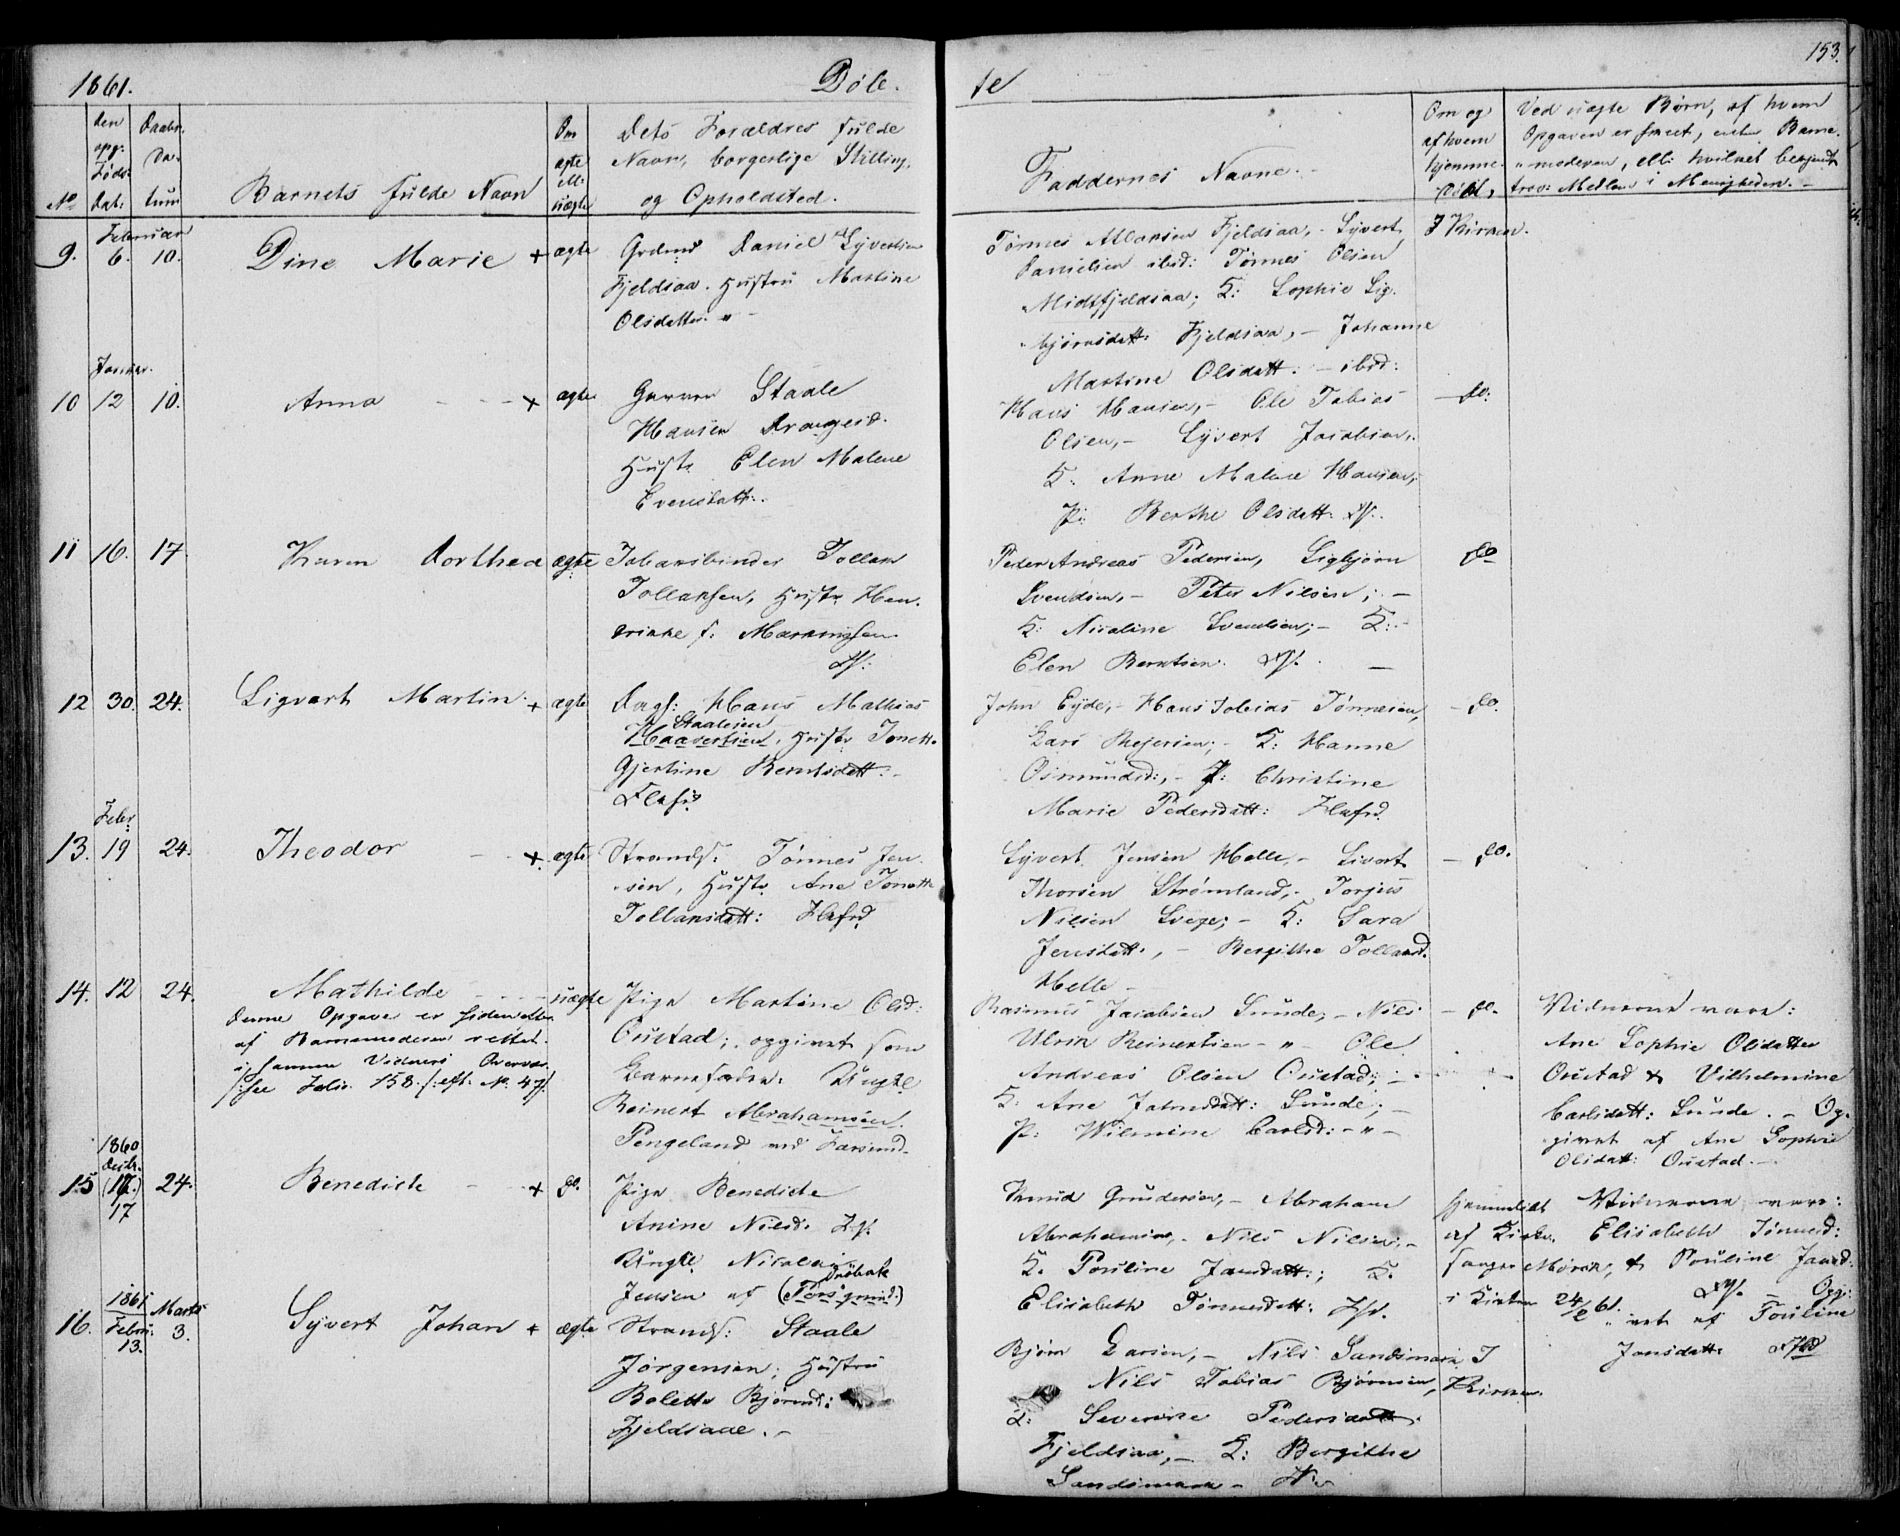 1861. Døb-
te 153.
No
den opg: Føds: Dat:
Daabs Da- tum
Barnets fulde Navn
Om ægte ell: uægte
Dets Forældres fulde
Navn, borgerlige Stilling,
og Opholdsted.
Faddernes Navne.
Om og af hvem hjemme- døbt,
Ved uægte Børn, af hvem
Opgaven er skeet, enten Barne-
moderen, ell: hvilket bekjendt
trov: Medlem i Menigheden.
Februar
9. 6. 10. Dine Marie + ægte
Daniel Syvertsen
Fjeldsaa. Hustru Martine
Olsdatter
Tønnes Atlaksen Fjeldsaa, - Syvert
Danielsen ibid: Tønnes Olsen
Midtfjeldsaa; K: Sophie Sig-
bjørnsdatt: Fjeldsaa, - Johanne
Martine Olsdatt: - ibid:
I Kirken.
Januar.
10 12 10. Anna - - + ægte
Garver Staale
Hansen
Hustr Elen Malene
Evensdatt:
Hans Hansen, - Ole Tobias
Olsen, - Syvert Jacobsen,
K: Anne Malene Hansen,
P: Berthe Olsdatt:
- do:
11 16. 17 Karen Dorthea ægte
Tobaksbinder Tollak
Tollaksen, Hustr Hen-
rikke f:
Peder Andreas Pedersen, Sigbjørn
Svendsen, - Peter Nilsen; -
K: Nicoline Svendsen; - K:
Elen Berntsen.
do
12 30. 24. Sigvart Martin + ægte
Dagl: Hans Mathias
Staalesen
Haavertsen, Hustr Tonett-
Gjertine Berntsdatt: -
Flekfd
John Eyde, - Hans Tobias Tønnesen,
Lars K: Hanne
Osmundsd:, - P: Christine
Marie Pedersdatt: Flekfd.
- do.
Febr
13. 19 24. Theodor - + ægte
Strands: Tønnes Jen-
sen, Hustr Ane Tonette
Tollaksdatt: Flekfd
Syvert Jensen Helle, - Sivert
Thorsen Strømland, - Torjus
Nilsen Svege; - K: Sara
Jensdatt:, - Bergithe Tollaksd.
Helle -
- do.
14. 12 24. Mathilde - - uægte
Denne Opgave er siden
af Barnemoderen rettet
i samme Vidners Overvær
/: see Folio 158 /: eft: No. 47 /.
Pige Martine Olsd:
Oustad; opgivet som
Barnefader: Ungk.
Reinert Abrahamsen
Pengeland ved Farsund.
Rasmus Jacobsen Sunde, - Nils
Ulrik Reinertsen - " - Ole
Andreas Olsen Oustad; -
K: Ane Johnsdatt: Sunde; -
P: Wilmine Carlsd: - " -
- do.
Vidnerne vare:
Ane Sophie Olsdatter
Oustad & Vilhelmine
Carlsdatt: Sunde. - Op-
givet af Ane Sophie
Olsdatt: Oustad. -
1860
Decbr.
15 (16.) 24. Benedicte - - + do.
17
Pige Benedicte
Anine Nilsd:
Ungk. Nicolai
Drøbak
Jensen af (Porsgrund.)
Gundersen, - Abraham
Abrahamsen, - Nils Nilsen, -
K. Pouline Jansdatt:; K.
Elisabeth Tønnesdatt:
hjemmedøbt
af Kirke-
sanger Mørch,
i Kirken 24/2 61.
Vidnerne vare:
Elisabeth Tønnesd:
& Pouline Jansd:
Opg:
ivet af Pouline
Jansdatt:
1861
Febru: Marts
16. 13. 3. Syvert Johan + ægte
Strands: Staale
Jørgensen; Hustru
Bolette Bjørnsd:
Fjeldsaae. -
Bjørn Larsen, - Nils Sandsmark
Nils Tobias Bjørnsen,
K: Severine Pedersdatt:
Fjeldsaa, - K: Bergithe
Sandsmark -
I
Kirken.